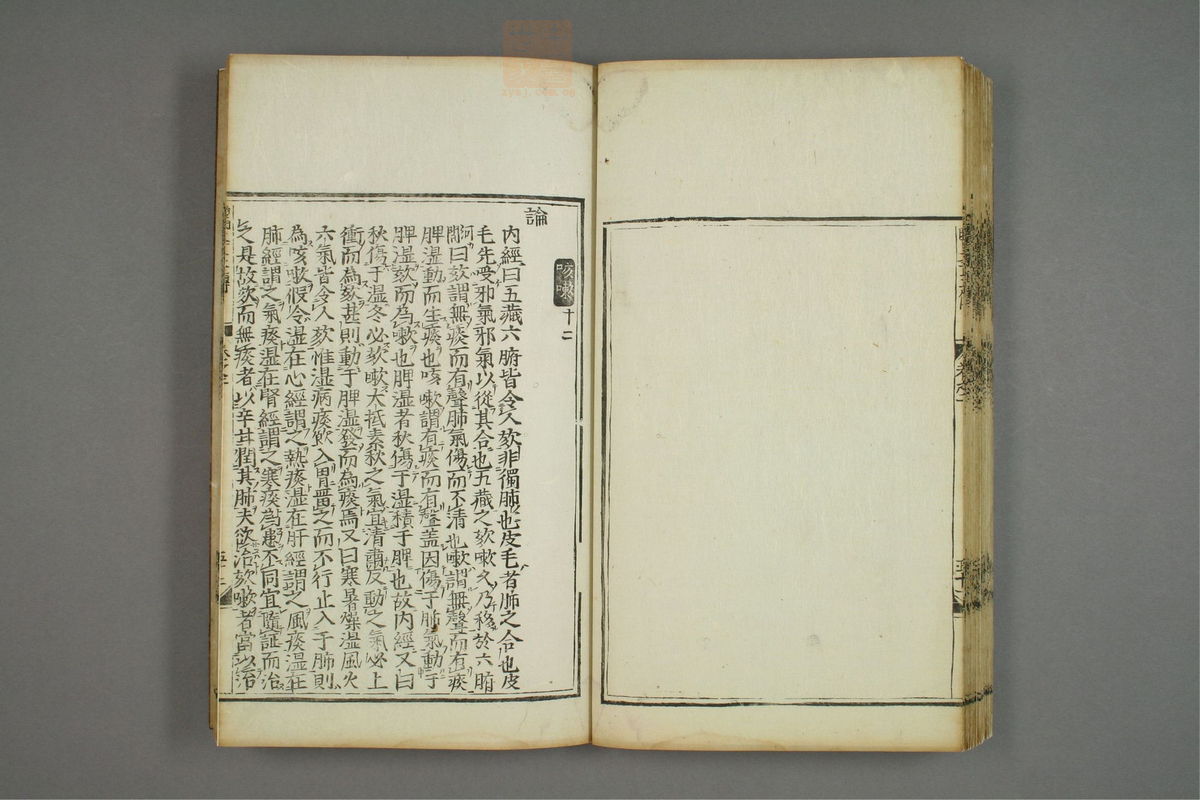 咳嗽十二
論
内經曰五藏六腑皆令人欬非獨肺也皮毛者肺之合也皮
毛先受邪氣邪氣以從其合也五藏之欬嗽久乃移於六腑
河間曰欬謂無痰而有聲肺氣傷而不清也嗽謂無聲而有痰
脾濕動而生痰也咳嗽謂有痰而有聲盖因傷于肺氣動于
脾湿欬而為嗽也脾湿者秋傷于湿積于脾也故内經又曰
秋傷于湿冬必欬嗽大抵素秋之氣宜清肅反動之氣必上
衝而為欬甚則動于脾湿發而為痰焉又曰寒暑燥湿風火
六氣皆令人欬惟湿病痰飲入胃畱之而不行止入于肺則
為咳嗽假令湿在心經謂之熱痰湿在肝經謂之風痰湿在
肺經謂之氣痰湿在腎經謂之寒痰為患不同宜隨証而治
之是故欬而無痰者以辛甘潤其肺夫欲治欬嗽者當以治